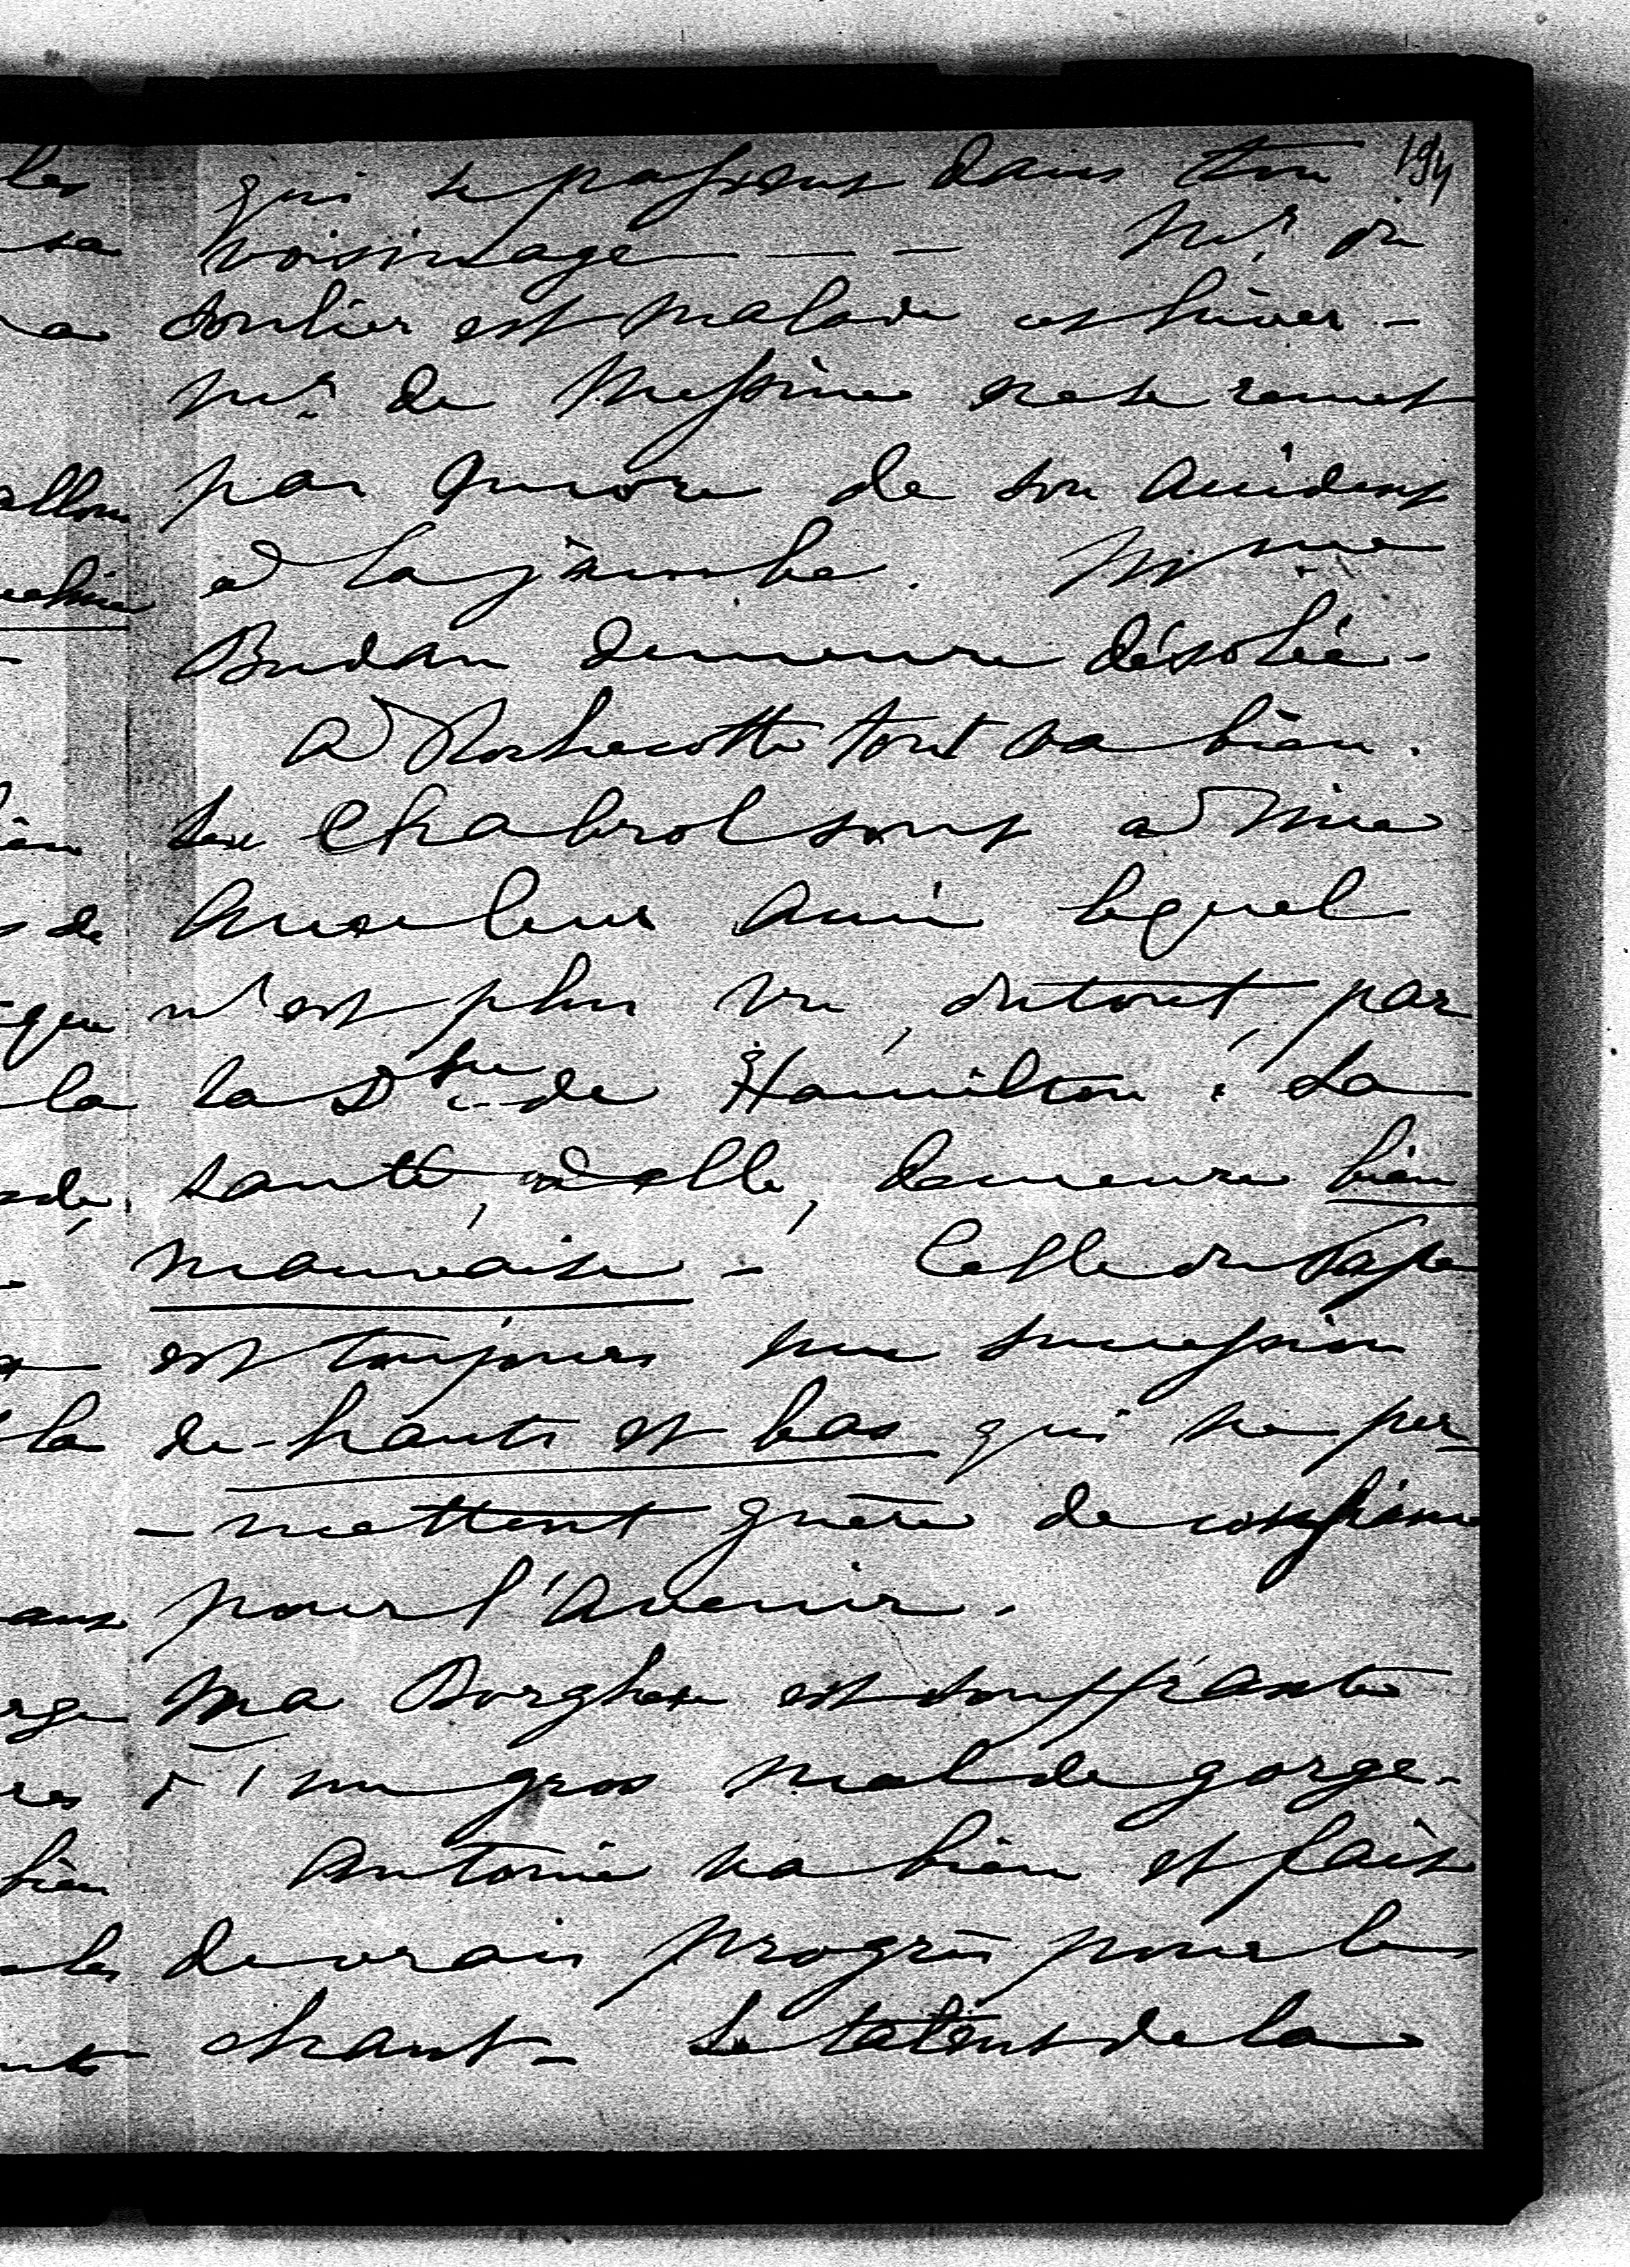 194
qui se passent dans ton
voisinage — — — Mr. du
Soulier est malade cet hiver –
Mr. de Messine ne se remet
pas encore de son accident
à la jambe. Mme
Budan demeure désolée –
à Rochecotte tout va bien.
Les Chabrol sont à Nice
avec leur ami lequel
n'est plus vu, du tout, par
la Dsse de Hamilton. La
santé, à elle, demeure bien
mauvaise – Celle du Pape
est toujours une succession
de hauts et bas qui ne per
– mettent guère de confiance
pour l'avenir.
Ma Borghese est souffrante
d'un gros mal de gorge –
Antonie va bien et fait
de vrais progrès pour le
chant – Le talent de la